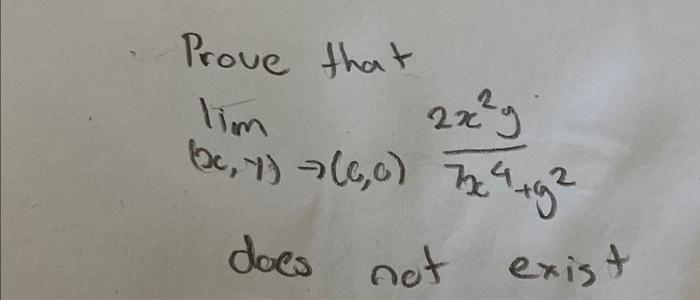 Prove that
lim (x,y)→(0,0) 2x²y / 7x⁴+y²
does not exist